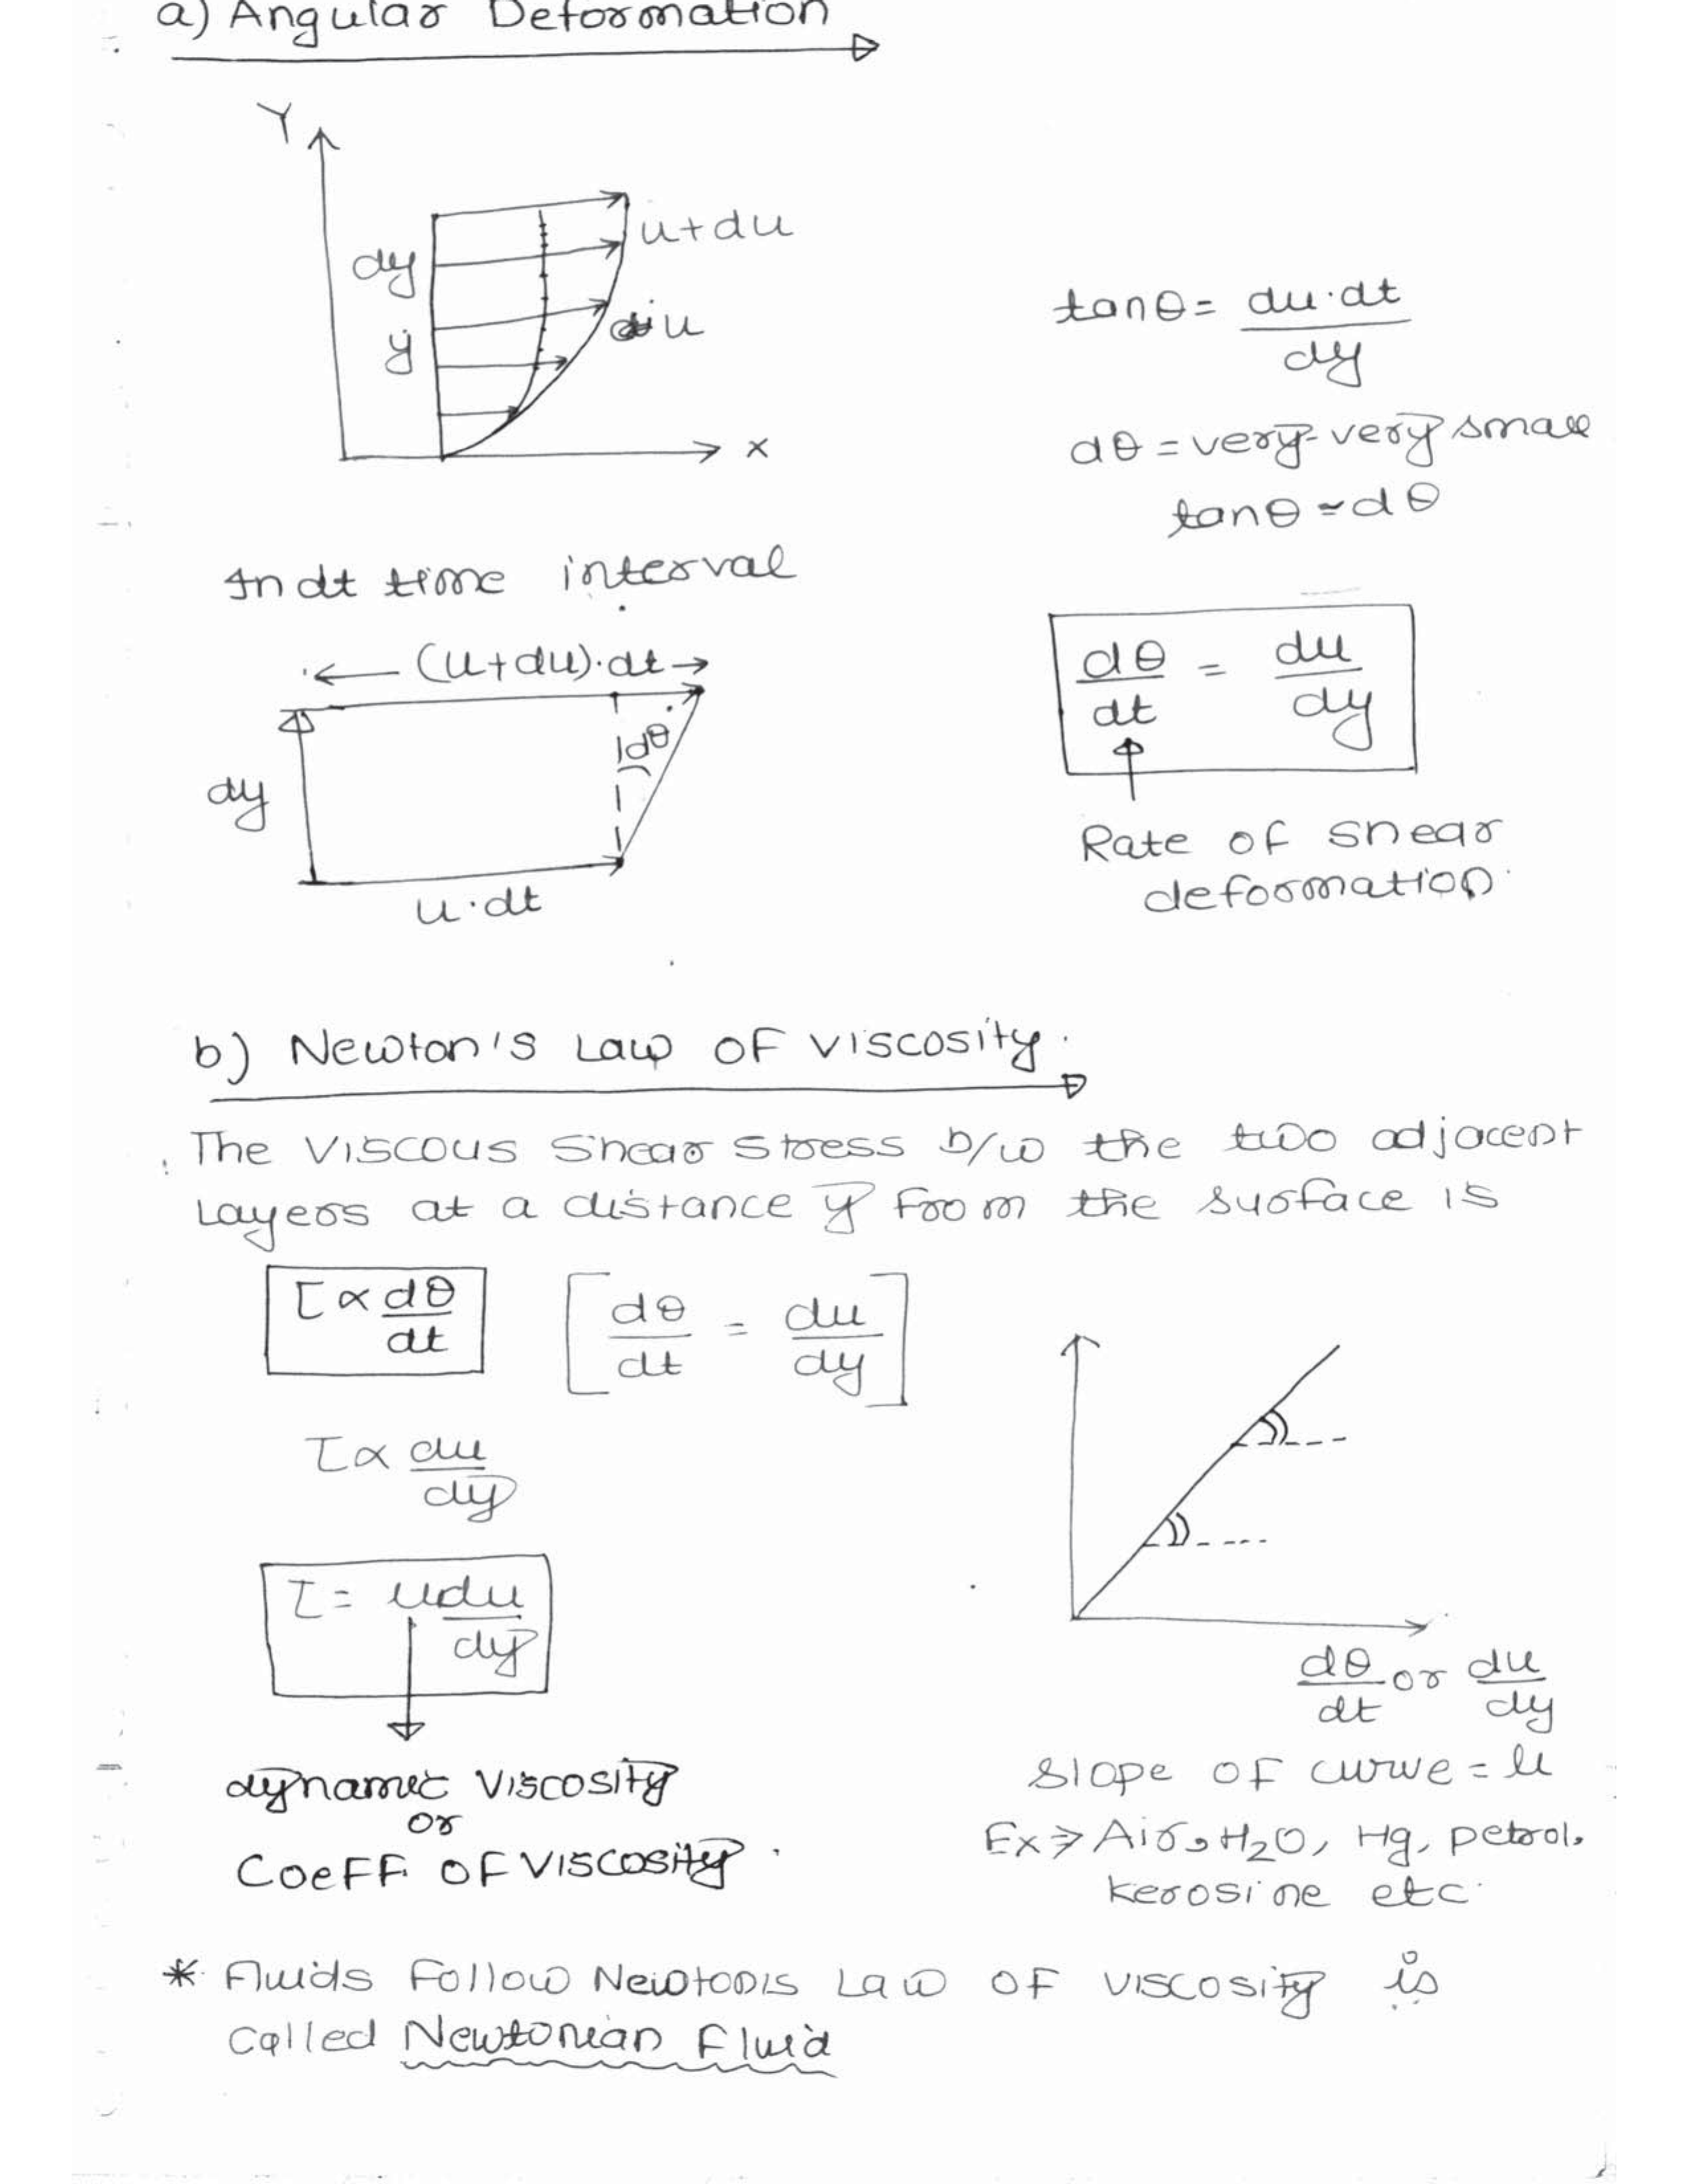 a) Angular Deformation
Y
u+du
dy
u
y
x
tanθ = du·dt
dy
dθ = very-very small
tanθ ≃ dθ
In dt time interval
(u+du)·dt
dθ
dy
u·dt
dθ/dt = du/dy
Rate of shear
deformation
b) Newton's Law OF viscosity.
The Viscous Shear Stress b/w the two adjacent
Layers at a distance y From the surface is
τ ∝ dθ/dt [dθ/dt = du/dy]
τ ∝ du/dy
τ = μ du/dy
dynamic Viscosity
or
Coeff. OF Viscosity.
dθ/dt or du/dy
Slope OF curve = μ
Ex ⇒ Air, H₂O, Hg, petrol,
kerosine etc.
* Fluids Follow Newton's Law OF viscosity is
Called Newtonian Fluid